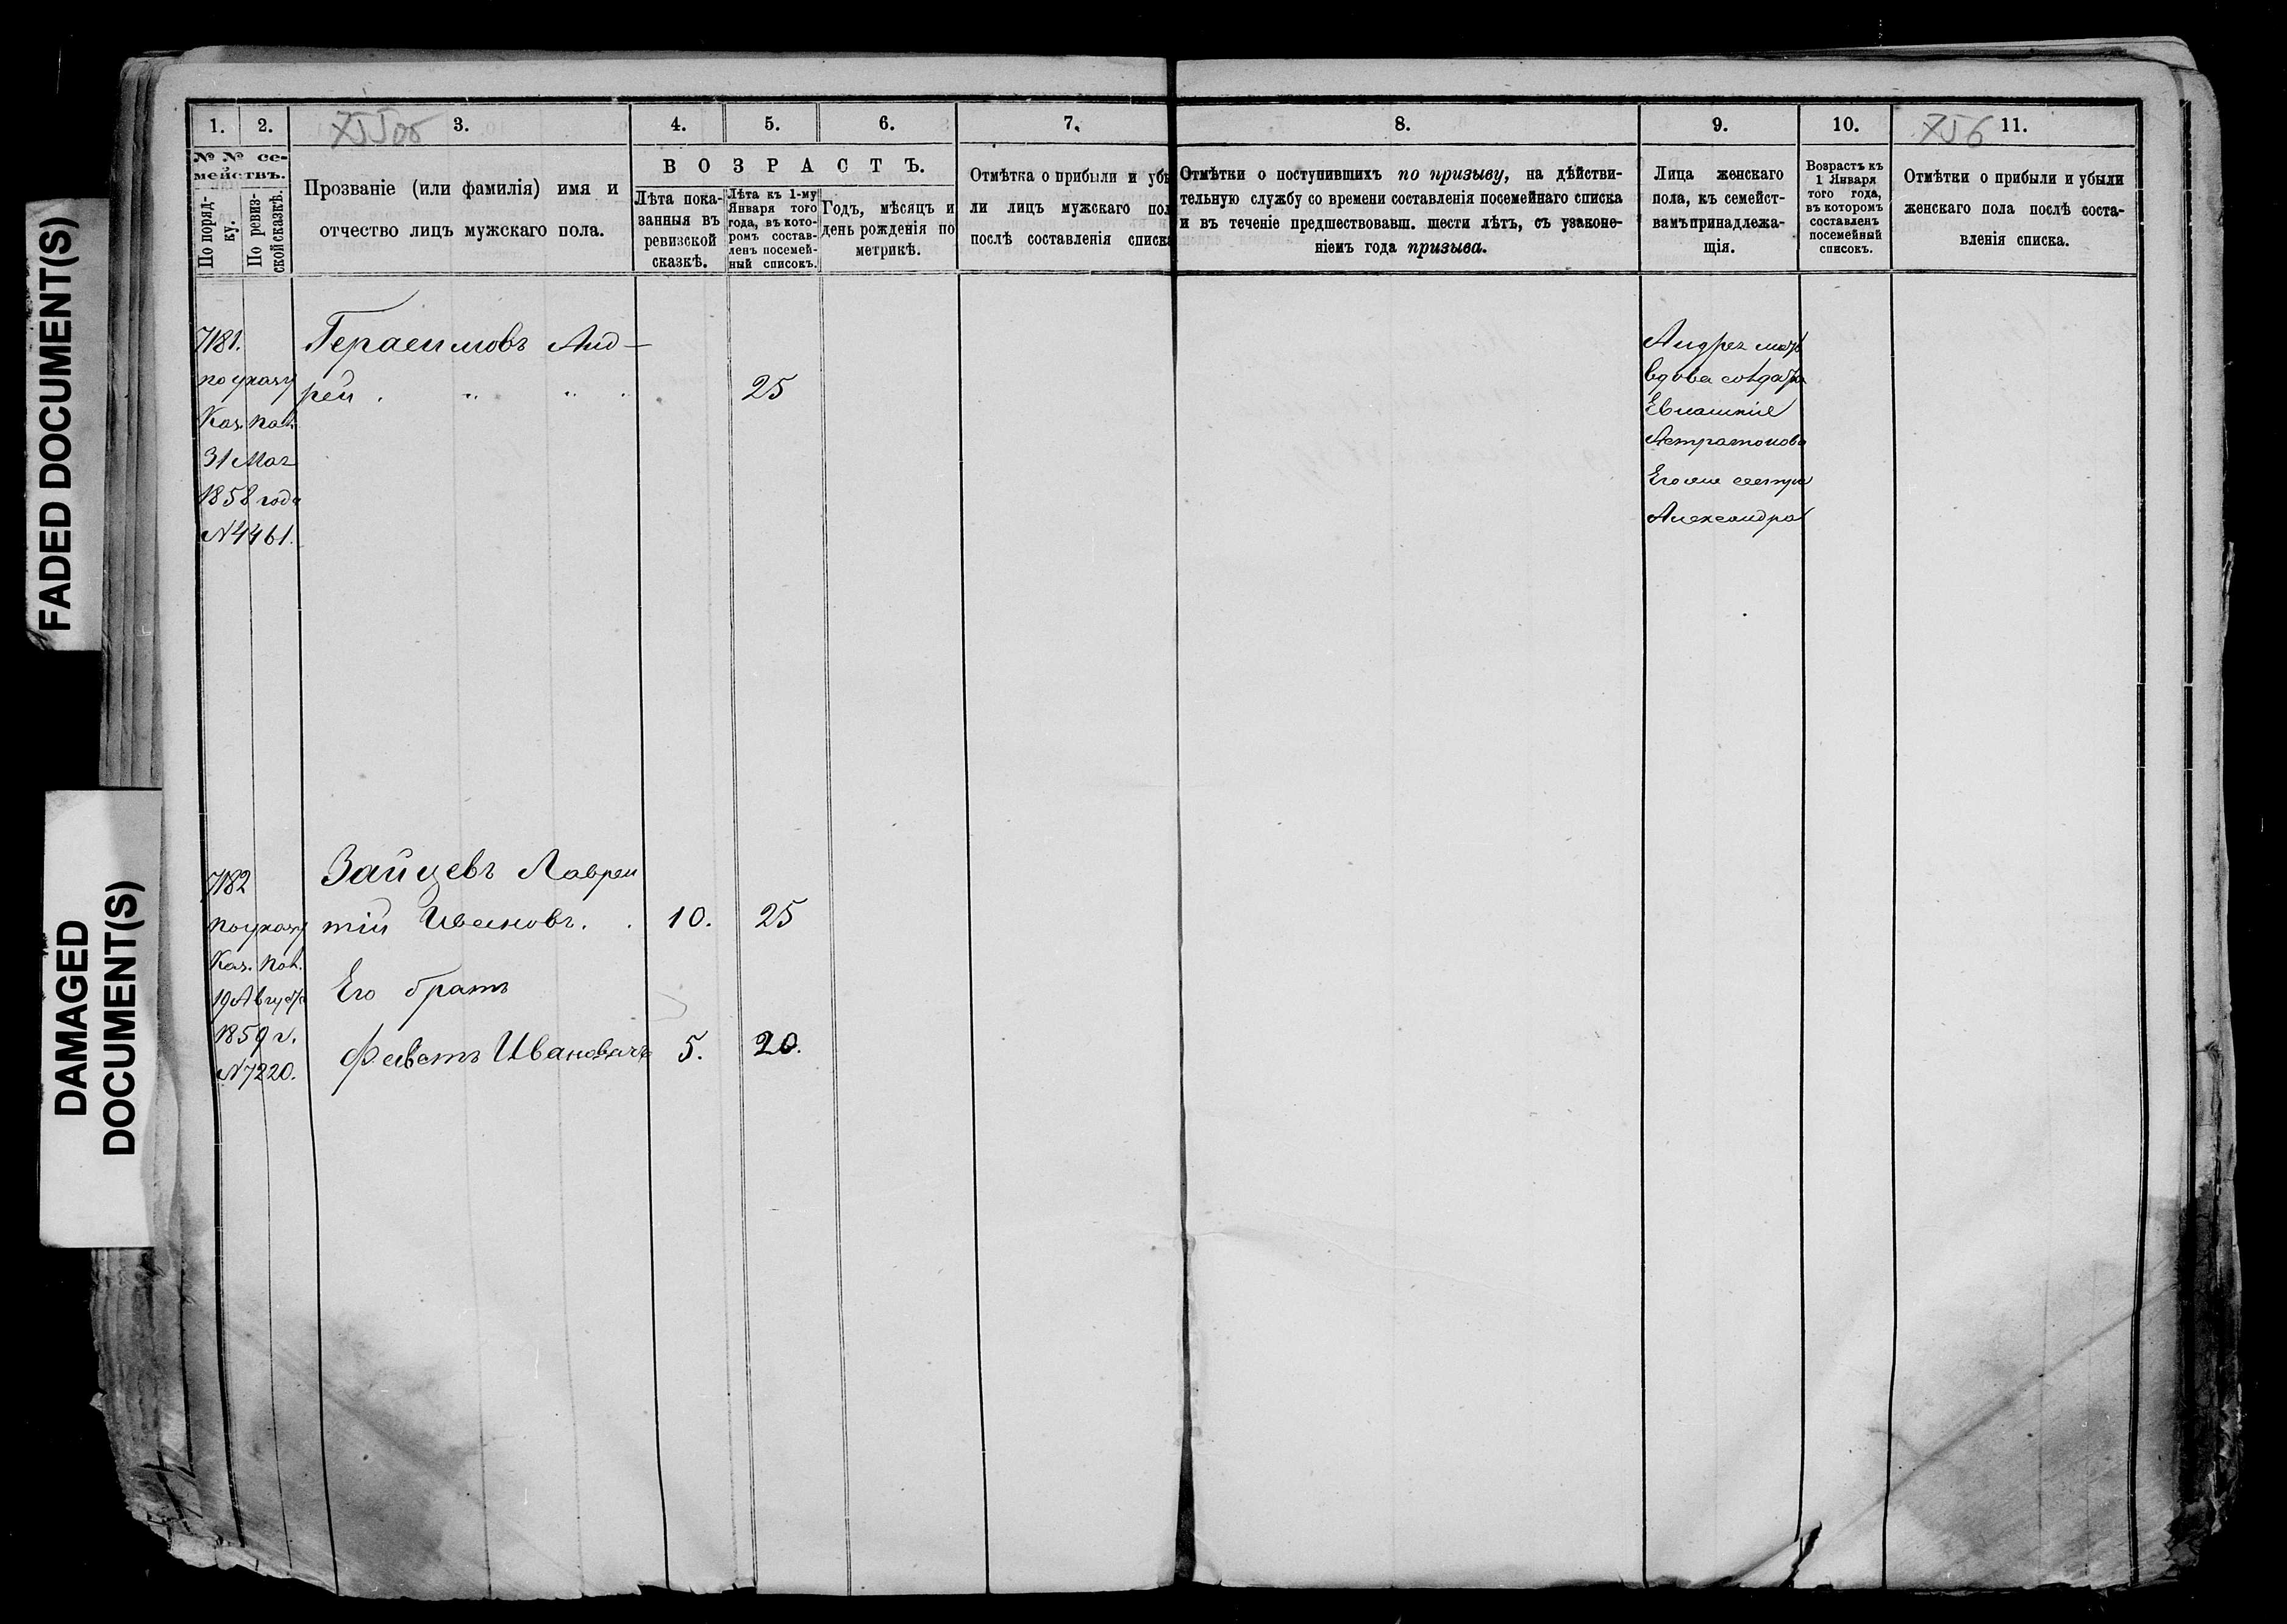 FADED DOCUMENT(S)
DAMAGED
DOCUMENT(S)
1.
2.
3.
4.
5.
6.
7.
8.
9.
10.
756
11.
№ № се-
мействъ.
По поряд-
ку.
По ревиз-
ской сказкѣ.
Прозваніе (или фамилія) имя и
отчество лицъ мужскаго пола.
ВОЗРАСТЪ.
Лѣта пока-
занныя въ
ревизской
сказкѣ.
Лѣта къ 1-му
Января того
года, въ кото-
ромъ состав-
ленъ посемей-
ный списокъ.
Годъ, мѣсяцъ и
день рожденія по
метрикѣ.
Отмѣтка о прибыли и убы
ли лицъ мужскаго пол
послѣ составленія списка
Отмѣтки о поступившихъ по призыву, на дѣйстви-
тельную службу со времени составленія посемейнаго списка
и въ теченіе предшествовавш. шести лѣтъ, съ узаконе-
ніемъ года призыва.
Лица женскаго
пола, къ семейст-
вамъ принадлежа-
щія.
Возрастъ къ
1 Января
того года,
въ которомъ
составленъ
посемейный
списокъ.
Отмѣтки о прибыли и убыли
женскаго пола послѣ соста-
вленія списка.
7181.
по указу
Каз. Пал.
31 Мая
1858 года
№ 4461.
Герасимовъ Анд-
рей
25
Андрея мать
вдова солдатка
Астратонова
Его же сестра
Александра
7182
по указу
Каз. Пал.
19 Августа
1859 г.
№ 7220.
Зайцевъ Лаврен
тій Ивановъ.
10.
25
Его братъ
Ивановичъ
5.
20.